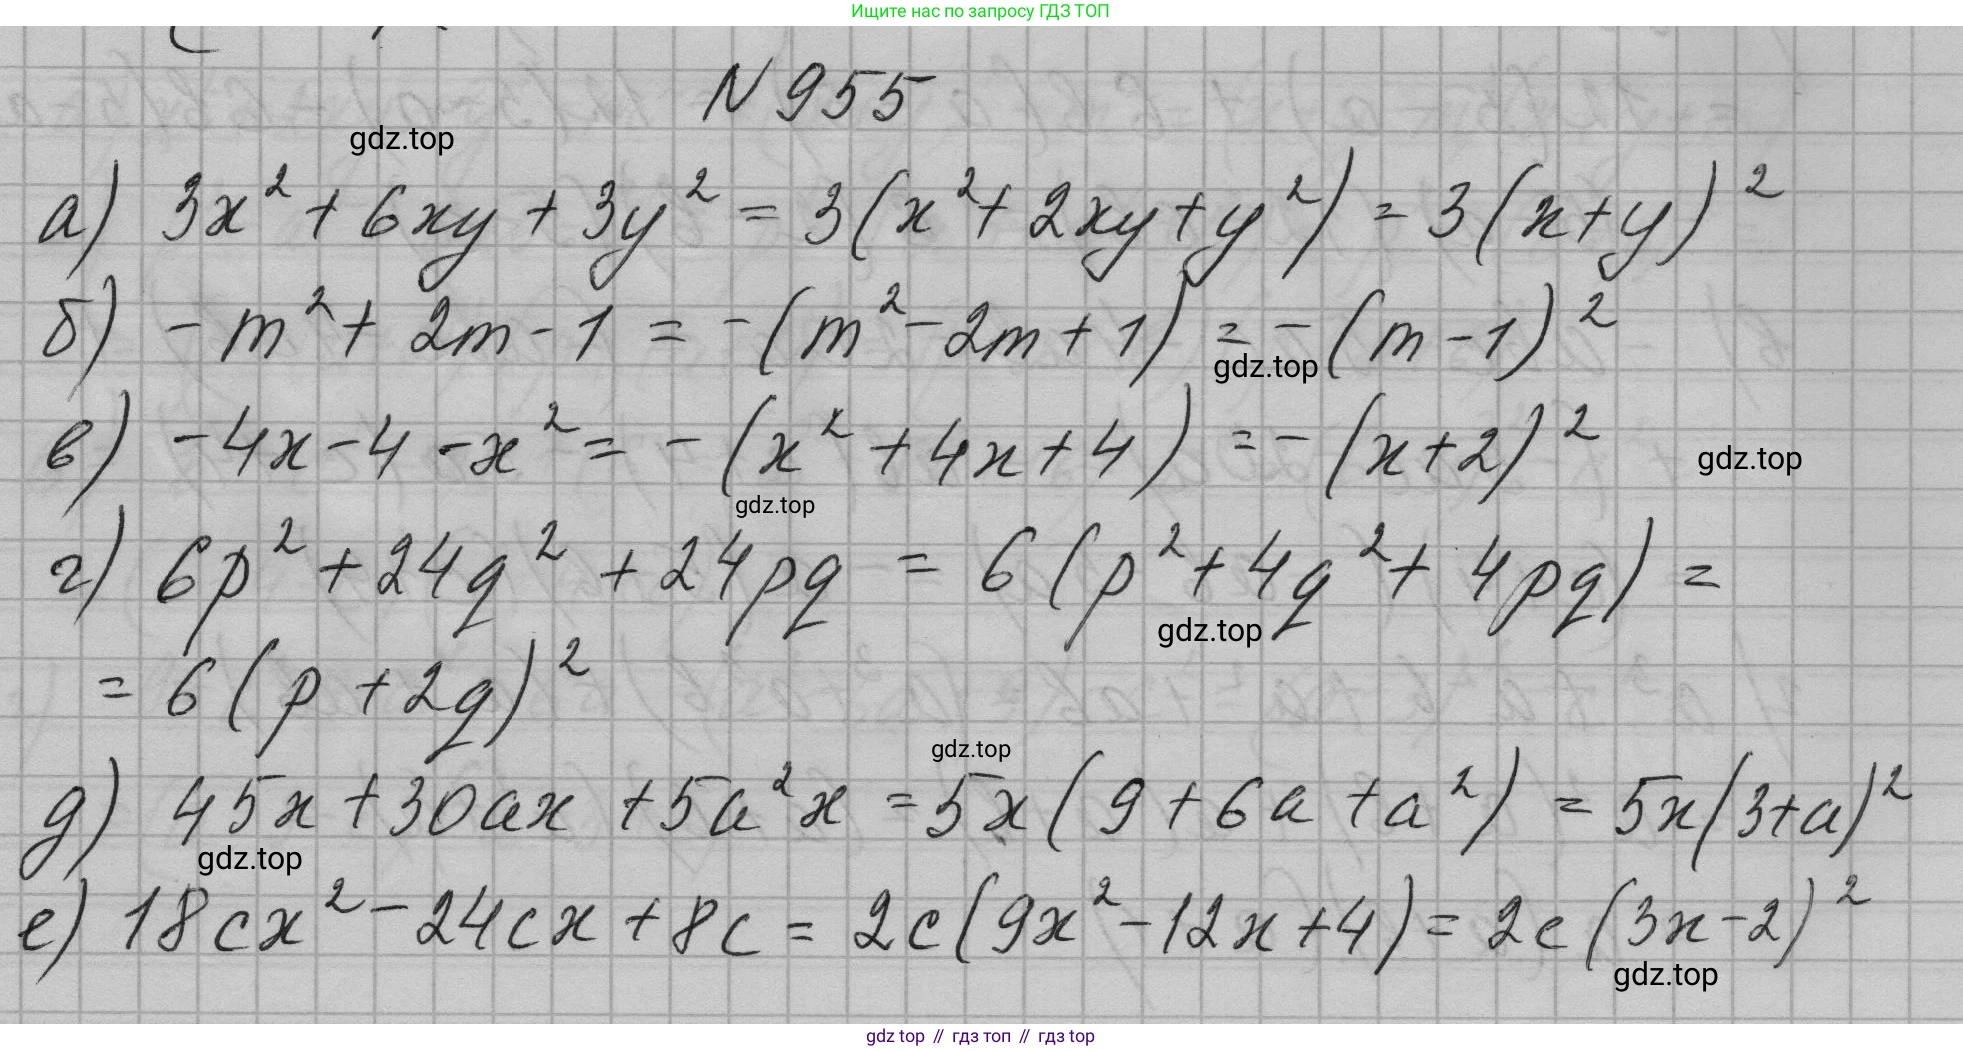 Ищите нас по запросу ГДЗ ТОП
N 955
gdz.top
а) 3x² + 6xy + 3y² = 3(x² + 2xy + y²) = 3(x+y)²
б) -m² + 2m - 1 = -(m² - 2m + 1) = -(m - 1)²
gdz.top
в) -4x - 4 - x² = -(x² + 4x + 4) = -(x+2)²
gdz.top
gdz.top
г) 6p² + 24q² + 24pq = 6(p² + 4q² + 4pq) =
gdz.top
= 6(p + 2q)²
gdz.top
д) 45x + 30ax + 5a²x = 5x(9 + 6a + a²) = 5x(3+a)²
gdz.top
е) 18cx² - 24cx + 8c = 2c(9x² - 12x + 4) = 2c(3x - 2)²
gdz.top
gdz top // гдз топ // гдз top